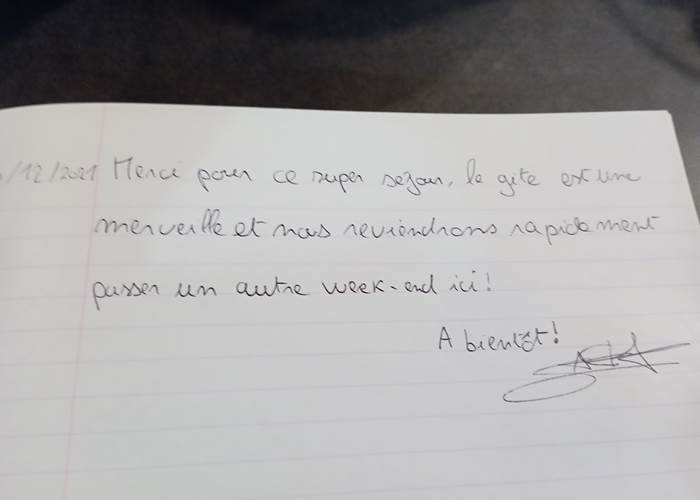 /12/2021 Merci pour ce super sejour, le gite est une
merveille et nous reviendrons rapidement
passer un autre week-end ici!
A bientôt!